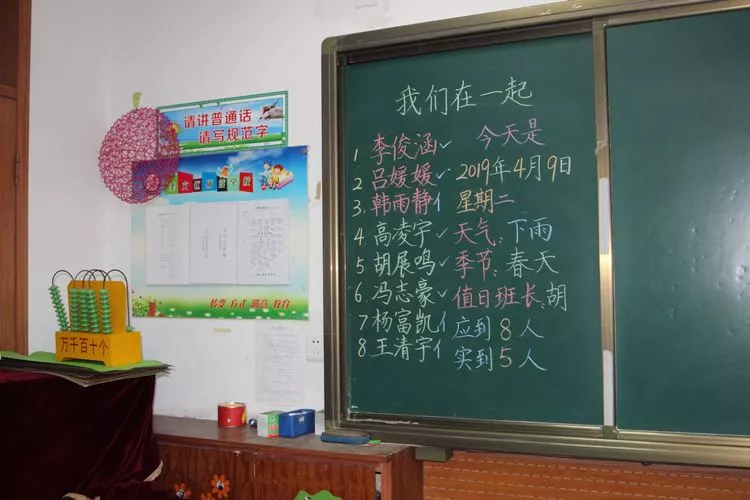 我们在一起
1 李俊涵✓ 今天是
2 吕媛媛✓ 2019年4月9日
3. 韩雨静亻 星期二
4 高凌宇✓ 天气:下雨
5 胡展鸣✓ 季节:春天
6. 冯志豪✓ 值日班长:胡
7 杨富凯亻 应到8人
8. 王清宇亻 实到5人
请讲普通话
请写规范字
万千百十个